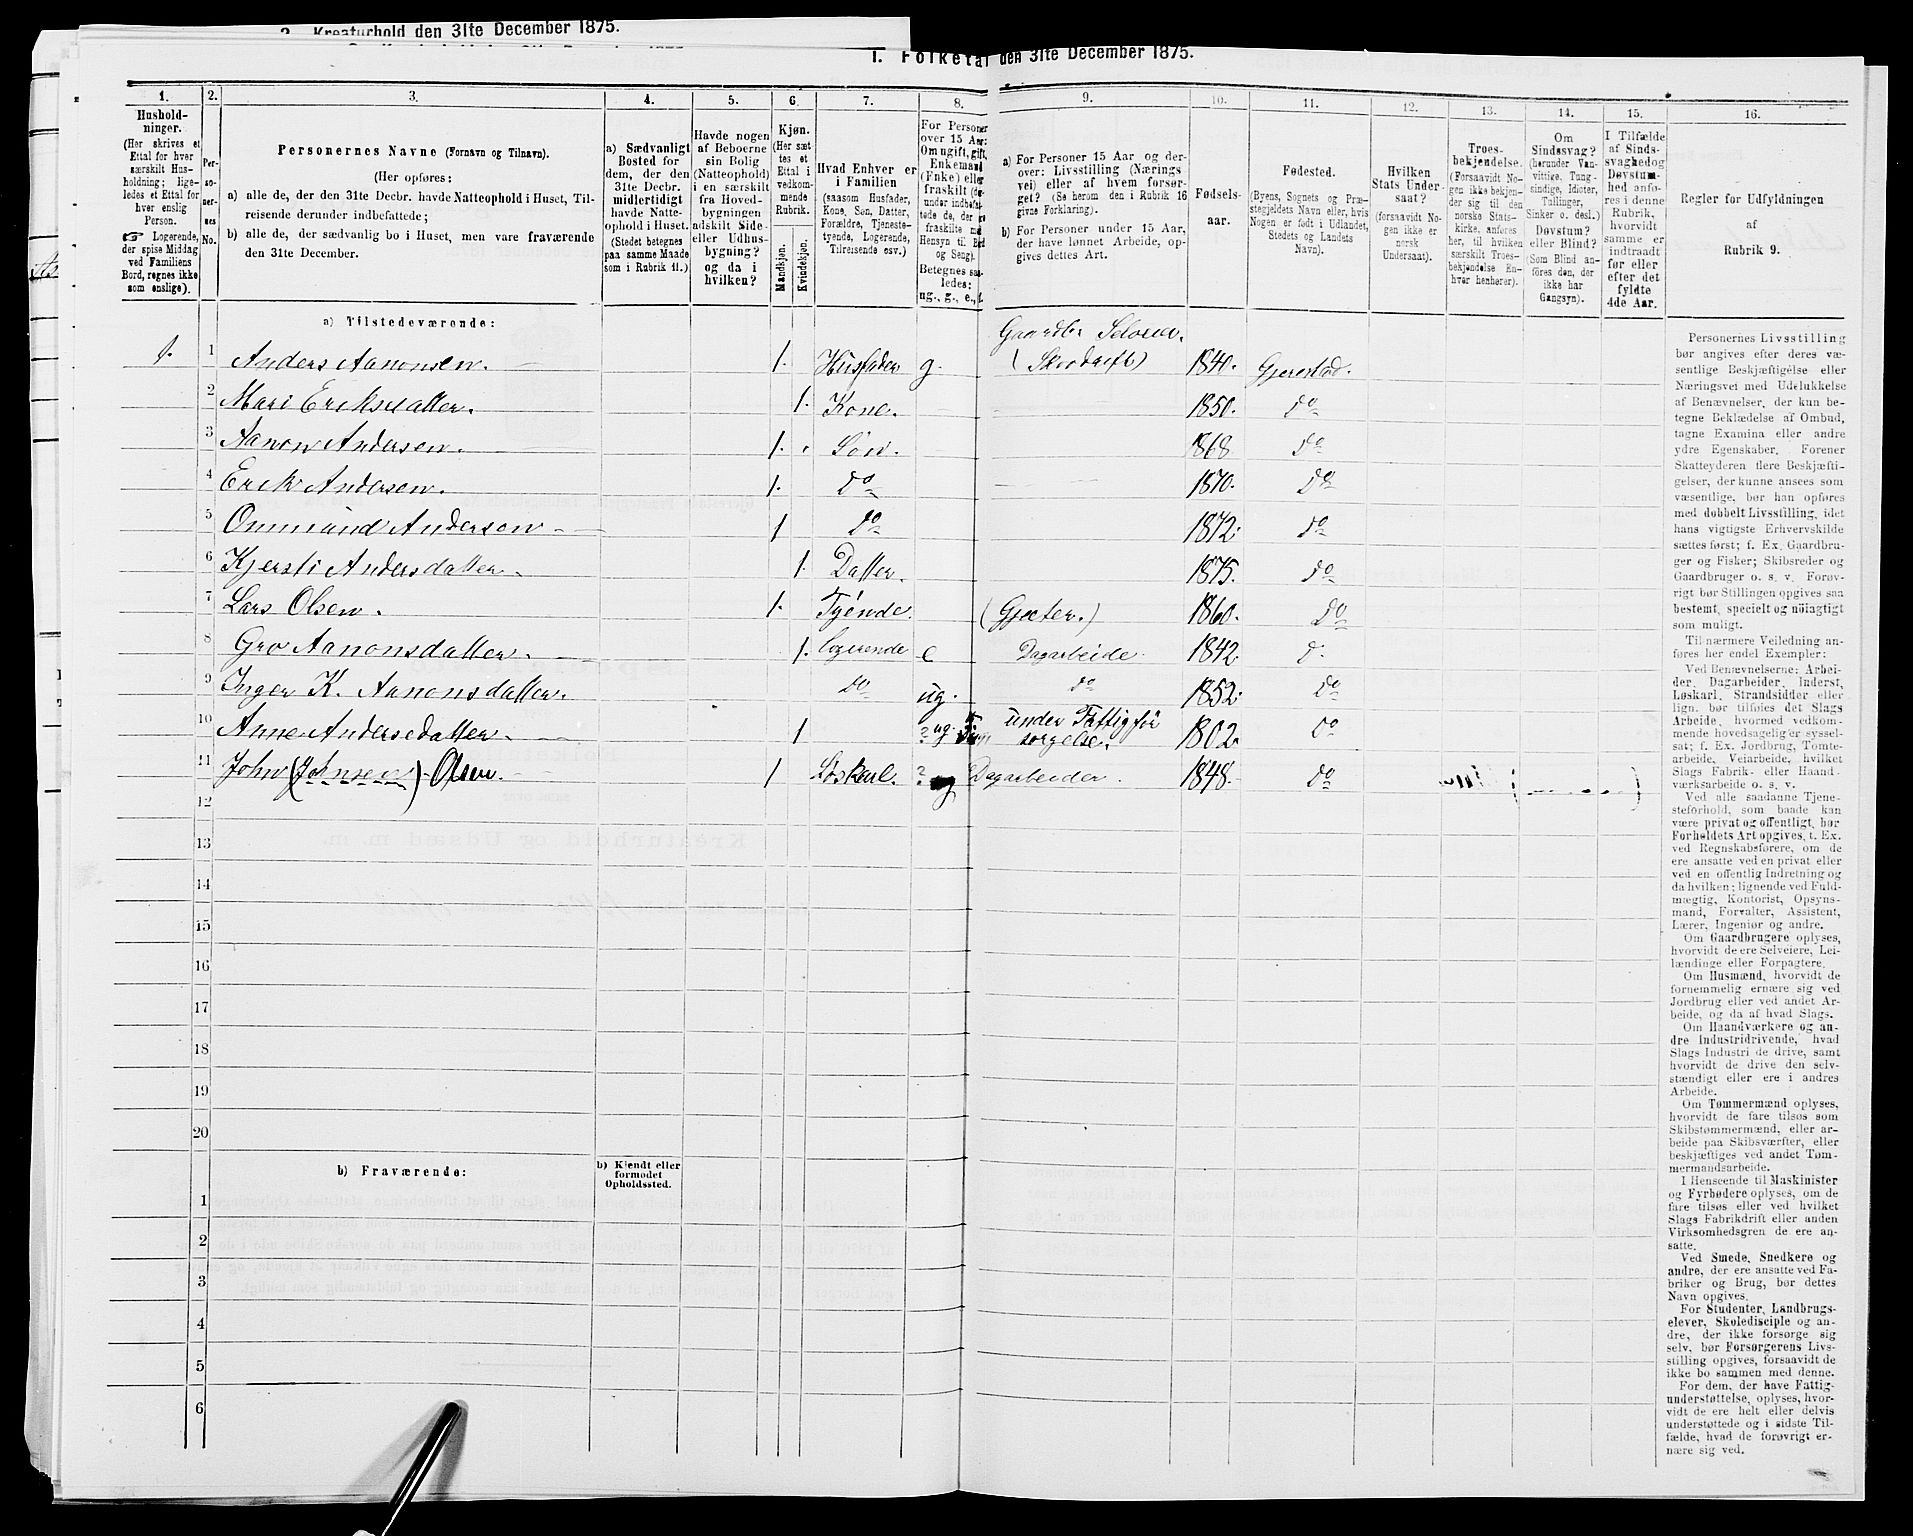 2. Kreaturhold den 31te December 1875.
I. Folketal den 31te December 1875.
1. 2. 3. 4. 5. 6. 7. 8. 9. 10. 11. 12. 13. 14. 15. 16.
Hushold-
ninger.
(Her skrives et
Ettal for hver
særskilt Hus-
holdning; lige-
ledes et Ettal for
hver enslig
Person.
☞ Logerende,
der spise Middag
ved Familiens
Bord, regnes ikke
som enslige).
Per-
so-
ner-
nes
No.
Personernes Navne (Fornavn og Tilnavn).
(Her opføres:
a) alle de, der den 31te Decbr. havde Natteophold i Huset, Til-
reisende derunder indbefattede;
b) alle de, der sædvanlig bo i Huset, men vare fraværende
den 31te December.
a) Sædvanligt
Bosted for
dem, der den
31te Decbr.
midlertidigt
havde Natte-
ophold i Huset.
(Stedet betegnes
paa samme Maade
som i Rubrik 11.)
Havde nogen
af Beboerne
sin Bolig
(Natteophold)
i en særskilt
fra Hoved-
bygningen
adskilt Side-
eller Udhus-
bygning?
og da i
hvilken?
Kjøn.
(Her sæt
tes et
Ettal i
vedkom-
mende
Rubrik.
Mandkjøn.
Kvindekjøn.
Hvad Enhver er
i Familien
(saasom Husfader,
Kone, Søn, Datter,
Forældre, Tjeneste-
tyende, Logerende,
Tilreisende osv.)
For Personer
over 15 Aar:
Om ugift, gift,
Enkemand
(Enke) eller
fraskilt (de-
under indbefat-
tede de, der
fraskilte med
Hensyn til Bord
og Seng).
Betegnes saa-
ledes:
ug., g., e., f.
a) For Personer 15 Aar og der-
over: Livsstilling (Nærings
vei) eller af hvem forsør-
get? (Se herom den i Rubrik 16
givne Forklaring).
b) For Personer under 15 Aar,
der have lønnet Arbeide, op-
gives dettes Art.
Fødsels-
aar.
Fødested.
(Byens, Sognets og Præ-
stegjeldets Navn eller, hvis
Nogen er født i Udlandet,
Stedets og Landets
Navn).
Hvilken
Stats Under-
saat?
(forsaavidt No-
gen ikke er
norsk
Undersaat).
Troes-
bekjendelse.
(Forsaavidt No-
gen ikke bekjen-
der sig til den
norske Stats-
kirke, anføres
her, til hvilken
særskilt Troes-
bekjendelse En-
hver henhører).
Om
Sindssvag?
(herunder Van-
vittige, Tung-
sindige, Idioter,
Tullinger,
Sinker o. desl.)
Døvstum?
eller Blind?
(Som Blind an-
føres den, der
ikke har
Gangsyn).
I Tilfælde
af Sinds-
svaghed og
Døvstum-
hed anfø-
res i denne
Rubrik,
hvorvidt
samme er
indtraadt
før eller
efter det
fyldte
4de Aar.
Regler for Udfyldningen
af
Rubrik 9.
a) Tilstedeværende:
Gaardbr Selveier.
1. 1 Anders Aanonsen. 1. Husfader g. (Skovdrift) 1840. Gjerestad.
2 Mari Eriksdatter. 1. Kone. 1850. do
3 Aanon Andersen. 1. Søn. 1868. do
4 Erik Andersen. 1. do 1870. do
5 Ommund Andersen 1 do 1872. do
6 Kjersti Andersdatter. 1. Datter. 1875. do
7 Lars Olsen. 1. Tyende. (Gjæter.) 1860. do
8 Gro Aanonsdatter. 1. logerende e Dagarbeide. 1842 d.
9 Inger K. Aanonsdatter. do ug. do 1852. do
10 Anne Andersedatter. 1 ? ug. under Fattigfor
sorgelse. 1802. do
11 John (Johnsen) Olsen. 1 Løskarl. ? ug Dagarbeider. 1848. do
12
13
14
15
16
17
18
19
20
b) Fraværende:
b) Kjendt eller
formodet
Opholdssted.
1
2
3
4
5
6
Personernes Livsstilling
bør angives efter deres væ-
sentlige Beskjæftigelse eller
Næringsvei med Udelukkelse
af Benævnelser, der kun be-
tegne Beklædelse af Ombud,
tagne Examina eller andre
ydre Egenskaber. Forener
Skatteyderen flere Beskjæfti-
gelser, der kunne ansees som
væsentlige, bør han opføres
med dobbelt Livsstilling, idet
hans vigtigste Erhvervskilde
sættes først; f. Ex. Gaardbru-
ger og Fisker; Skibsreder og
Gaardbruger o. s. v. Forøv-
rigt bør Stillingen opgives saa
bestemt, specielt og nöiagtigt
som muligt.
Til nærmere Veiledning an-
føres her endel Exempler:
Ved Benævnelserne: Arbei-
der, Dagarbeider, Inderst,
Løskarl, Strandsidder eller
lign. bør tilføies det Slags
Arbeide, hvormed vedkom-
mende hovedsagelig er syssel-
sat; f. Ex. Jordbrug, Tomte-
arbeide, Veiarbeide, hvilket
Slags Fabrik- eller Haand-
værksarbeide o. s. v.
Ved alle saadanne Tjene-
steforhold, som baade kan
være privat og offentligt, bør
Forholdets Art opgives, t. Ex.
ved Regnskabsførere, om de
ere ansatte ved en privat eller
ved en offentlig Indretning og
da hvilken; lignende ved Fuld-
mægtig, Kontorist, Opsyns-
mand, Forvalter, Assistent,
Lærer, Ingeniør og andre.
Om Gaardbrugere oplyses,
hvorvidt de ere Selveiere, Lei-
lændinge eller Forpagtere.
Om Husmænd, hvorvidt de
fornemmelig ernære sig ved
Jordbrug eller ved andet Ar-
beide, og da af hvad Slags.
Om Haandværkere og an-
dre Industridrivende, hvad
Slags Industri de drive, samt
hvorvidt de drive den selv-
stændigt eller ere i andres
Arbeide.
Om Tømmermænd oplyses,
hvorvidt de fare tilsøs som
Skibstømmermænd, eller ar-
beide paa Skibsværfter, eller
beskjæftiges ved andet Tøm-
mermandsarbeide.
I Henseende til Maskinister
og Fyrbødere oplyses, om de
fare tilsøs eller ved hvilket
Slags Fabrikdrift eller anden
Virksomhedsgren de ere an-
satte.
Ved Smede, Snedkere og
andre, der ere ansatte ved Fa-
briker og Brug, bør dettes
Navn opgives.
For Studenter, Landbrugs-
elever, Skoledisciple og an-
dre, der ikke forsørge sig
selv, bør Forsørgerens Livs-
stilling opgives, forsaavidt de
ikke bo sammen med denne.
For dem, der have Fattig-
understøttelse, oplyses, hvor-
vidt de ere helt eller delvis
understøttede og i sidste Til-
fælde, hvad de forøvrigt er-
nære sig ved.